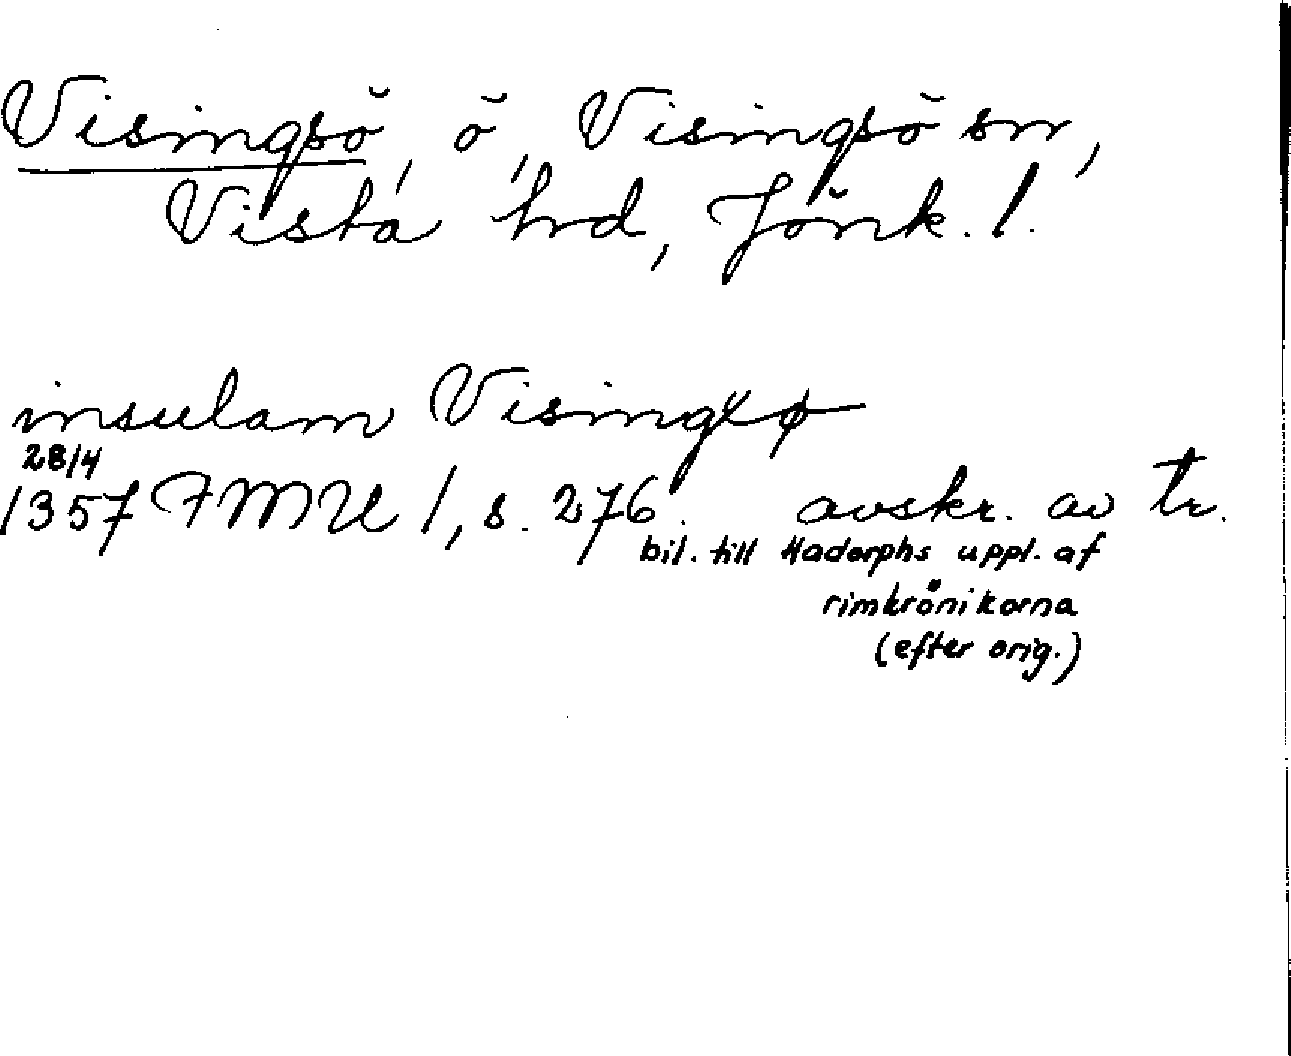 Visingsö, ö, Visingsö sn,
Vista hd, Jönk. l.
insulam Visingxø
28/4
1357 FMU 1, s. 276. avskr. av tr.
bil. till Hadorphs uppl. af
rimkrönikorna
(efter orig.)